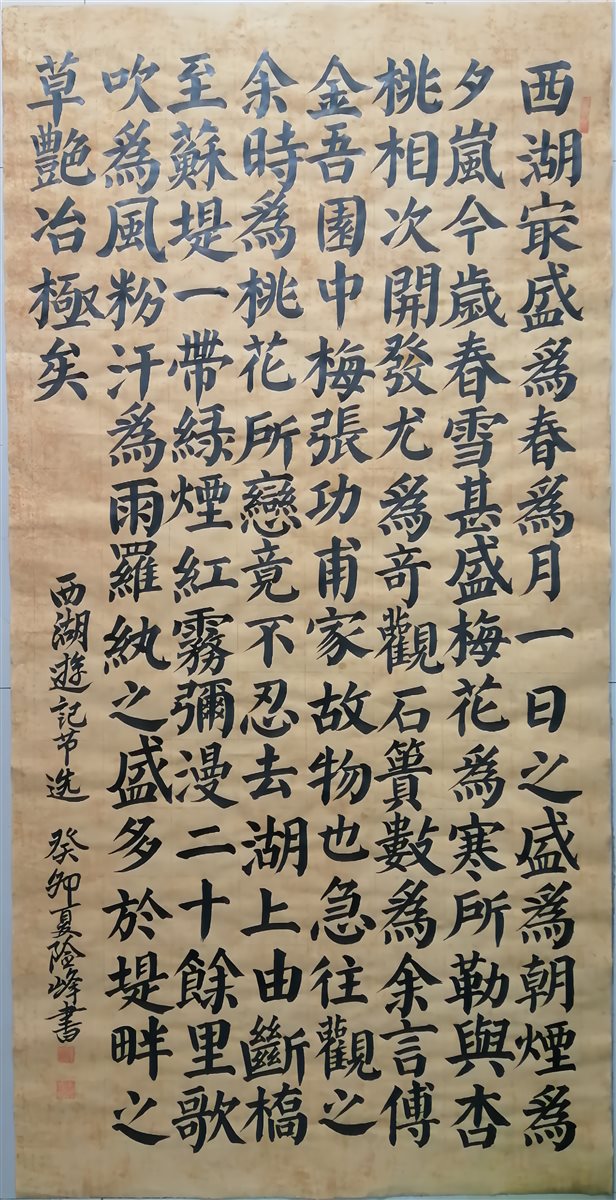 西湖冣盛爲春爲月一日之盛爲朝煙爲
夕嵐今歲春雪甚盛梅花爲寒所勒與杏
桃相次開發尤爲奇觀石簣數爲余言傅
金吾園中梅張功甫家故物也急往觀之
余時爲桃花所戀竟不忍去湖上由斷橋
至蘇堤一帶緑煙紅霧彌漫二十餘里歌
吹爲風粉汗爲雨羅紈之盛多於堤畔之
草艷冶極矣
西湖遊記节选 癸卯夏险峰書